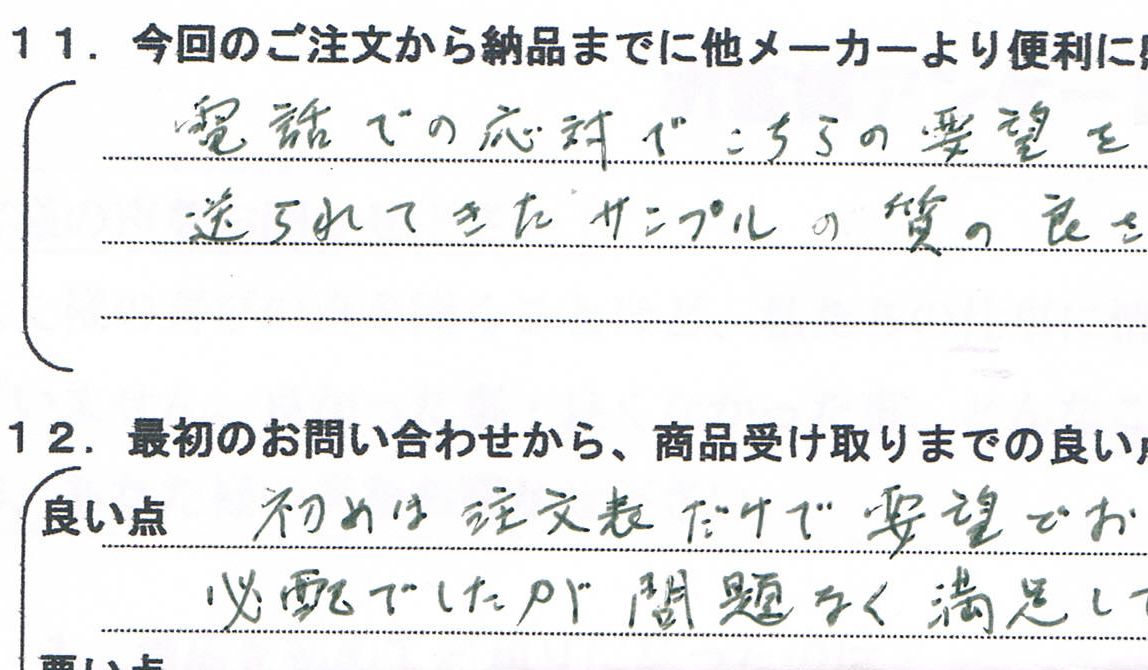 11. 今回のご注文から納品までに他メーカーより便利に
電話での応対でこちらの要望を
送られてきたサンプルの質の良さ
12. 最初のお問い合わせから、商品受け取りまでの良い
良い点 初めは注文表だけで要望どお
心配でしたが問題なく満足して
悪い点